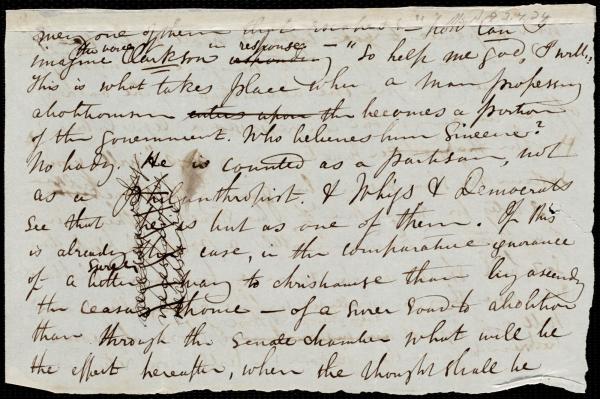 men, one of them — "how can I
imagine the voice of Clarkson in response responding — "So help me God, I will,"
This is what takes place when a man professing
abolitionism enters upon the becomes a portion
of the government. Who believes him sincere?
No body. He is counted as a partisan, not
as a Philanthropist. & Whigs & Democrats
see that he is but as one of them. If this
is already the case, in the comparative ignorance
of a better way to christianise than by ascending
the Ceasars throne — of a surer road to abolition
than through the Senate chamber what will be
the effect hereafter, when the thought shall be